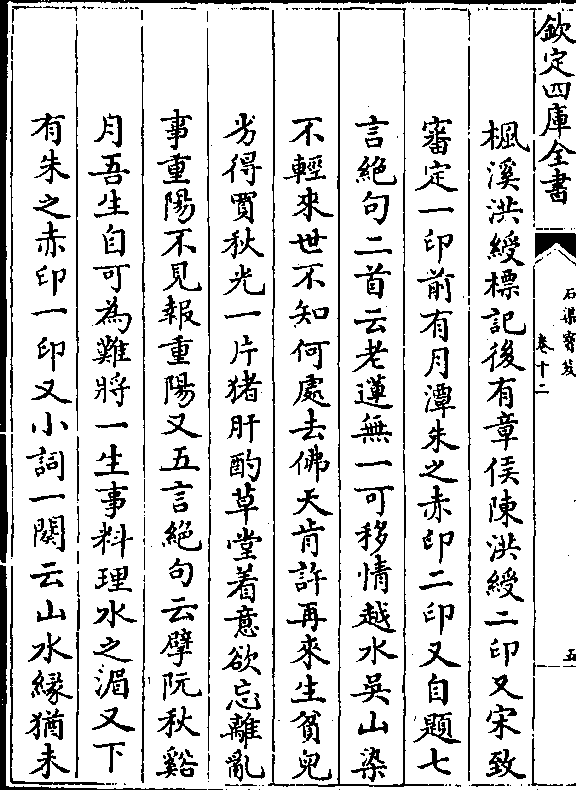 欽定四庫全書
石渠寶笈
卷十二
五
楓溪洪綬標記後有章侯陳洪綬二印又宋致
審定一印前有月潭朱之赤印二印又自題七
言絶句二首云老蓮無一可移情越水吳山染
不輕來世不知何處去佛天肯許再來生貧兒
劣得買秋光一片猪肝酌草堂着意欲忘離亂
事重陽不見報重陽又五言絶句云擘阮秋谿
月吾生自可為難將一生事料理水之湄又下
有朱之赤印一印又小詞一闋云山水緣猶未